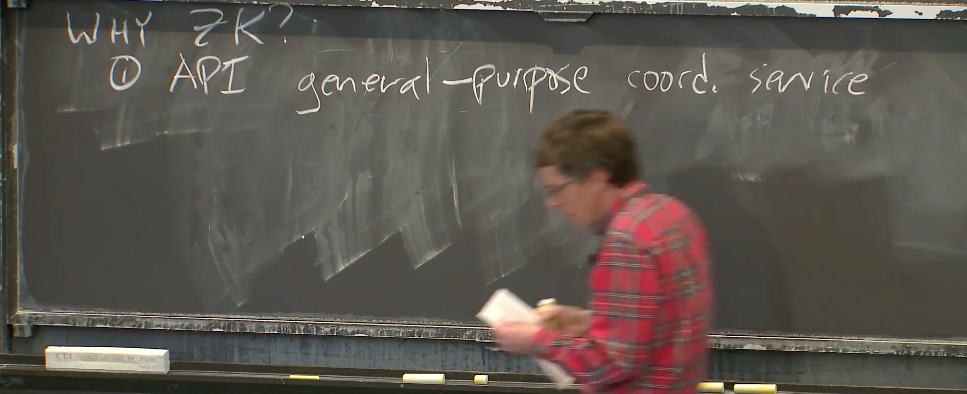 WHY ZK?
① API general-purpose coord. service